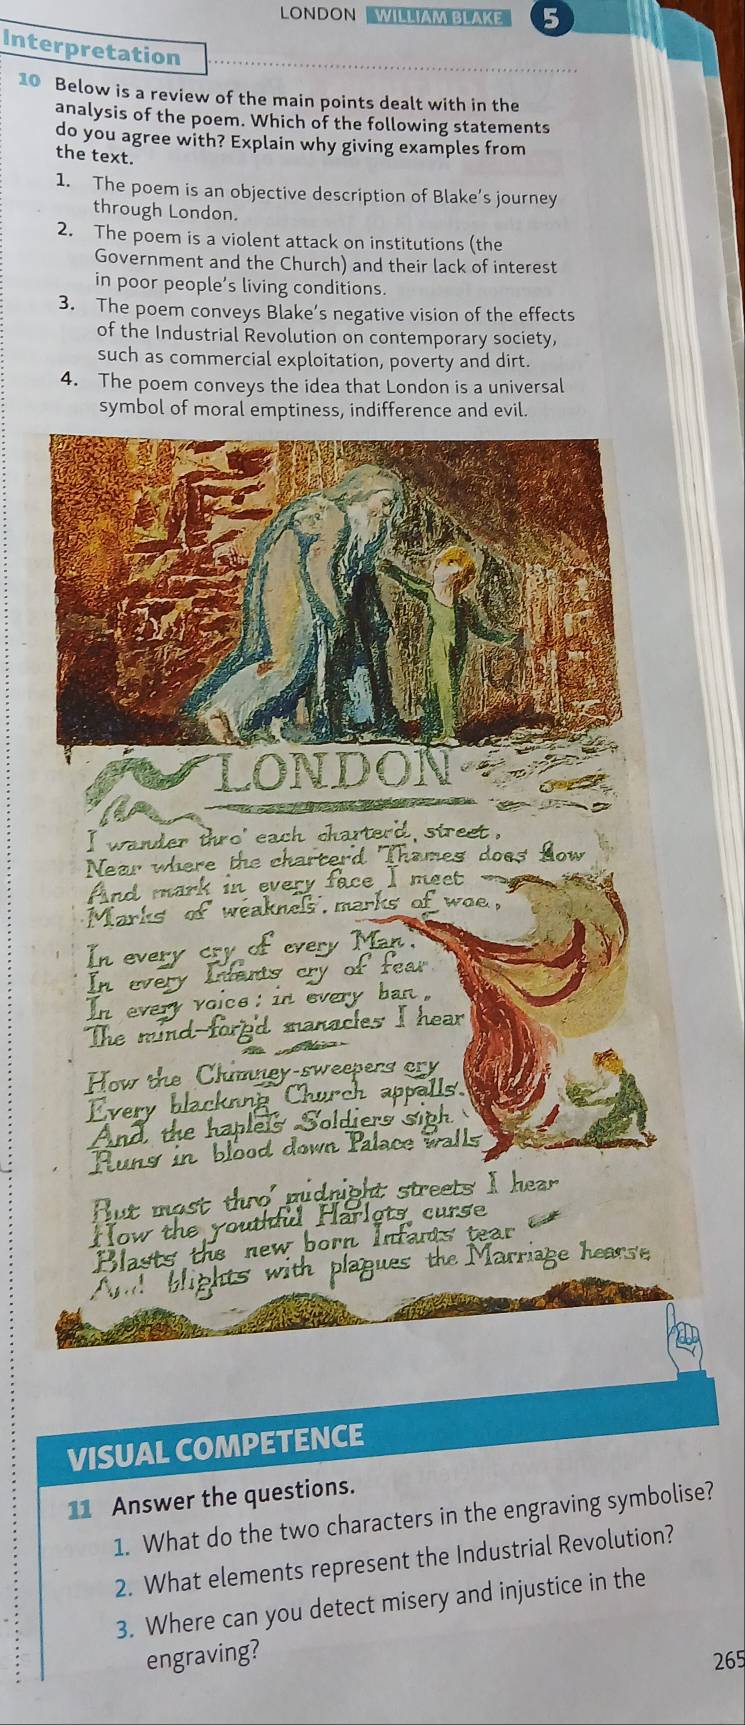 LONDON WILLIAM BLAKE 5
Interpretation
10 Below is a review of the main points dealt with in the
analysis of the poem. Which of the following statements
do you agree with? Explain why giving examples from
the text.
1. The poem is an objective description of Blake's journey
through London.
2. The poem is a violent attack on institutions (the
Government and the Church) and their lack of interest
in poor people's living conditions.
3. The poem conveys Blake's negative vision of the effects
of the Industrial Revolution on contemporary society,
such as commercial exploitation, poverty and dirt.
4. The poem conveys the idea that London is a universal
symbol of moral emptiness, indifference and evil.
LONDON
I wander thro' each charter'd street,
Near where the charter'd Thames does flow
And mark in every face I meet
Marks of weakness, marks of woe,
In every cry of every Man,
In every Infants cry of fear,
In every voice: in every ban,
The mind-forg'd manacles I hear
How the Chimney-sweepers cry
Every blackning Church appalls,
And the hapless Soldiers sigh
Runs in blood down Palace walls
But most thro' midnight streets I hear
How the youthful Harlots curse
Blasts the new born Infants tear
And blights with plagues the Marriage hearse
VISUAL COMPETENCE
11 Answer the questions.
1. What do the two characters in the engraving symbolise?
2. What elements represent the Industrial Revolution?
3. Where can you detect misery and injustice in the
engraving?
265